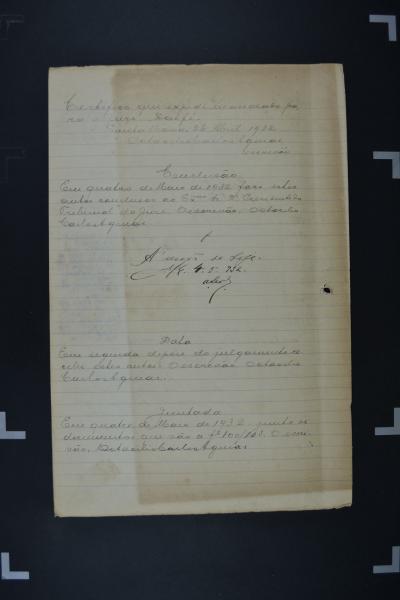 Certifico que expedi mandado pa
ra
Santa 26 Abril 1932
Octavio Carlos Aguiar
escrivão
Conclusão
Em quatro de Maio de 1932 faço estes
autos conclusos ao Exmo Sr. Dr. Presidente do
Tribunal do Jury. O escrivão, Octavio
Carlos Aguiar
A
4. 5. 932.
Data
Em seguida depois do julgamento re
cebi estes autos. O escrivão Octavio
Carlos Aguiar.
Juntada
Em quatro de Maio de 1932, junto os
documentos que são a fs 100/103. O escri
vão, Octavio Carlos Aguiar